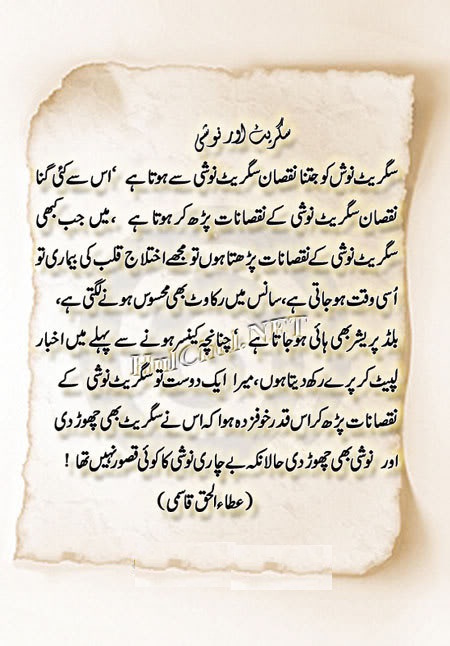 سگریٹ اور نوشی
سگریٹ نوش کو جتنا نقصان سگریٹ نوشی سے ہوتا ہے ‘اس سے کئی گنا
نقصان سگریٹ نوشی کے نقصانات پڑھ کر ہوتا ہے ،میں جب کبھی
سگریٹ نوشی کے نقصانات پڑھتا ہوں تو مجھے اختلاج قلب کی بیماری تو
اُسی وقت ہو جاتی ہے،سانس میں رکاوٹ بھی محسوس ہونے لگتی ہے،
بلڈ پریشر بھی ہائی ہو جاتا ہے ! چنانچہ کینسر ہونے سے پہلے میں اخبار
HulChul.NET
لپیٹ کر پرے رکھ دیتا ہوں،میرا ایک دوست تو سگریٹ نوشی کے
نقصانات پڑھ کر اس قدر خوفزدہ ہوا کہ اس نے سگریٹ بھی چھوڑ دی
اور نوشی بھی چھوڑ دی حالانکہ بے چاری نوشی کا کوئی قصور نہیں تھا !
(عطاء الحق قاسمی)